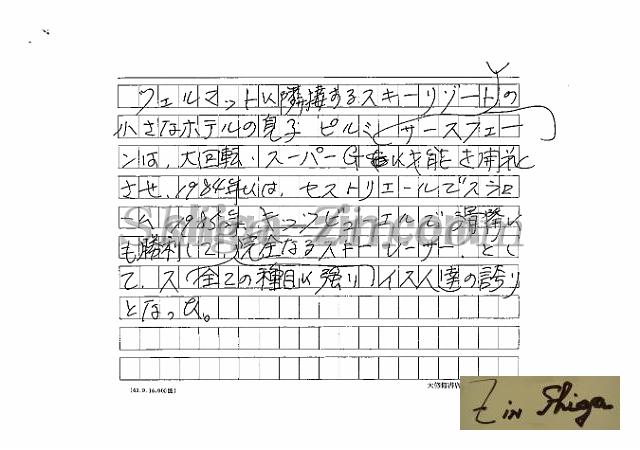 ツェルマットに隣接するスキーリゾートの
小さなホテルの息子 ピルミ サースフェー
ンは、大回転・スーパーG にも才能を開花
させ、1984年には、セストリエールでスラロ
ーム、1985年、キッツビューエルの滑降に
も勝利して、完全なるスキーレーサー、とし
て、ス (全ての種目に強い) イス人達の誇り
となった。
Shiga-Zin.com
(42.9.16,000冊)
大修館書
Z in Shiga